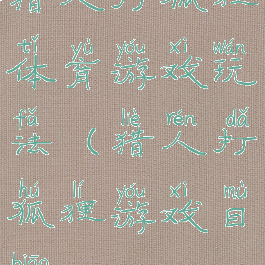 猎人打狐狸
tǐ yù yóu xì wán
体育游戏玩
fǎ liè rén dǎ
法（猎人打
hú lí yóu xì mù
狐狸游戏目
biāo